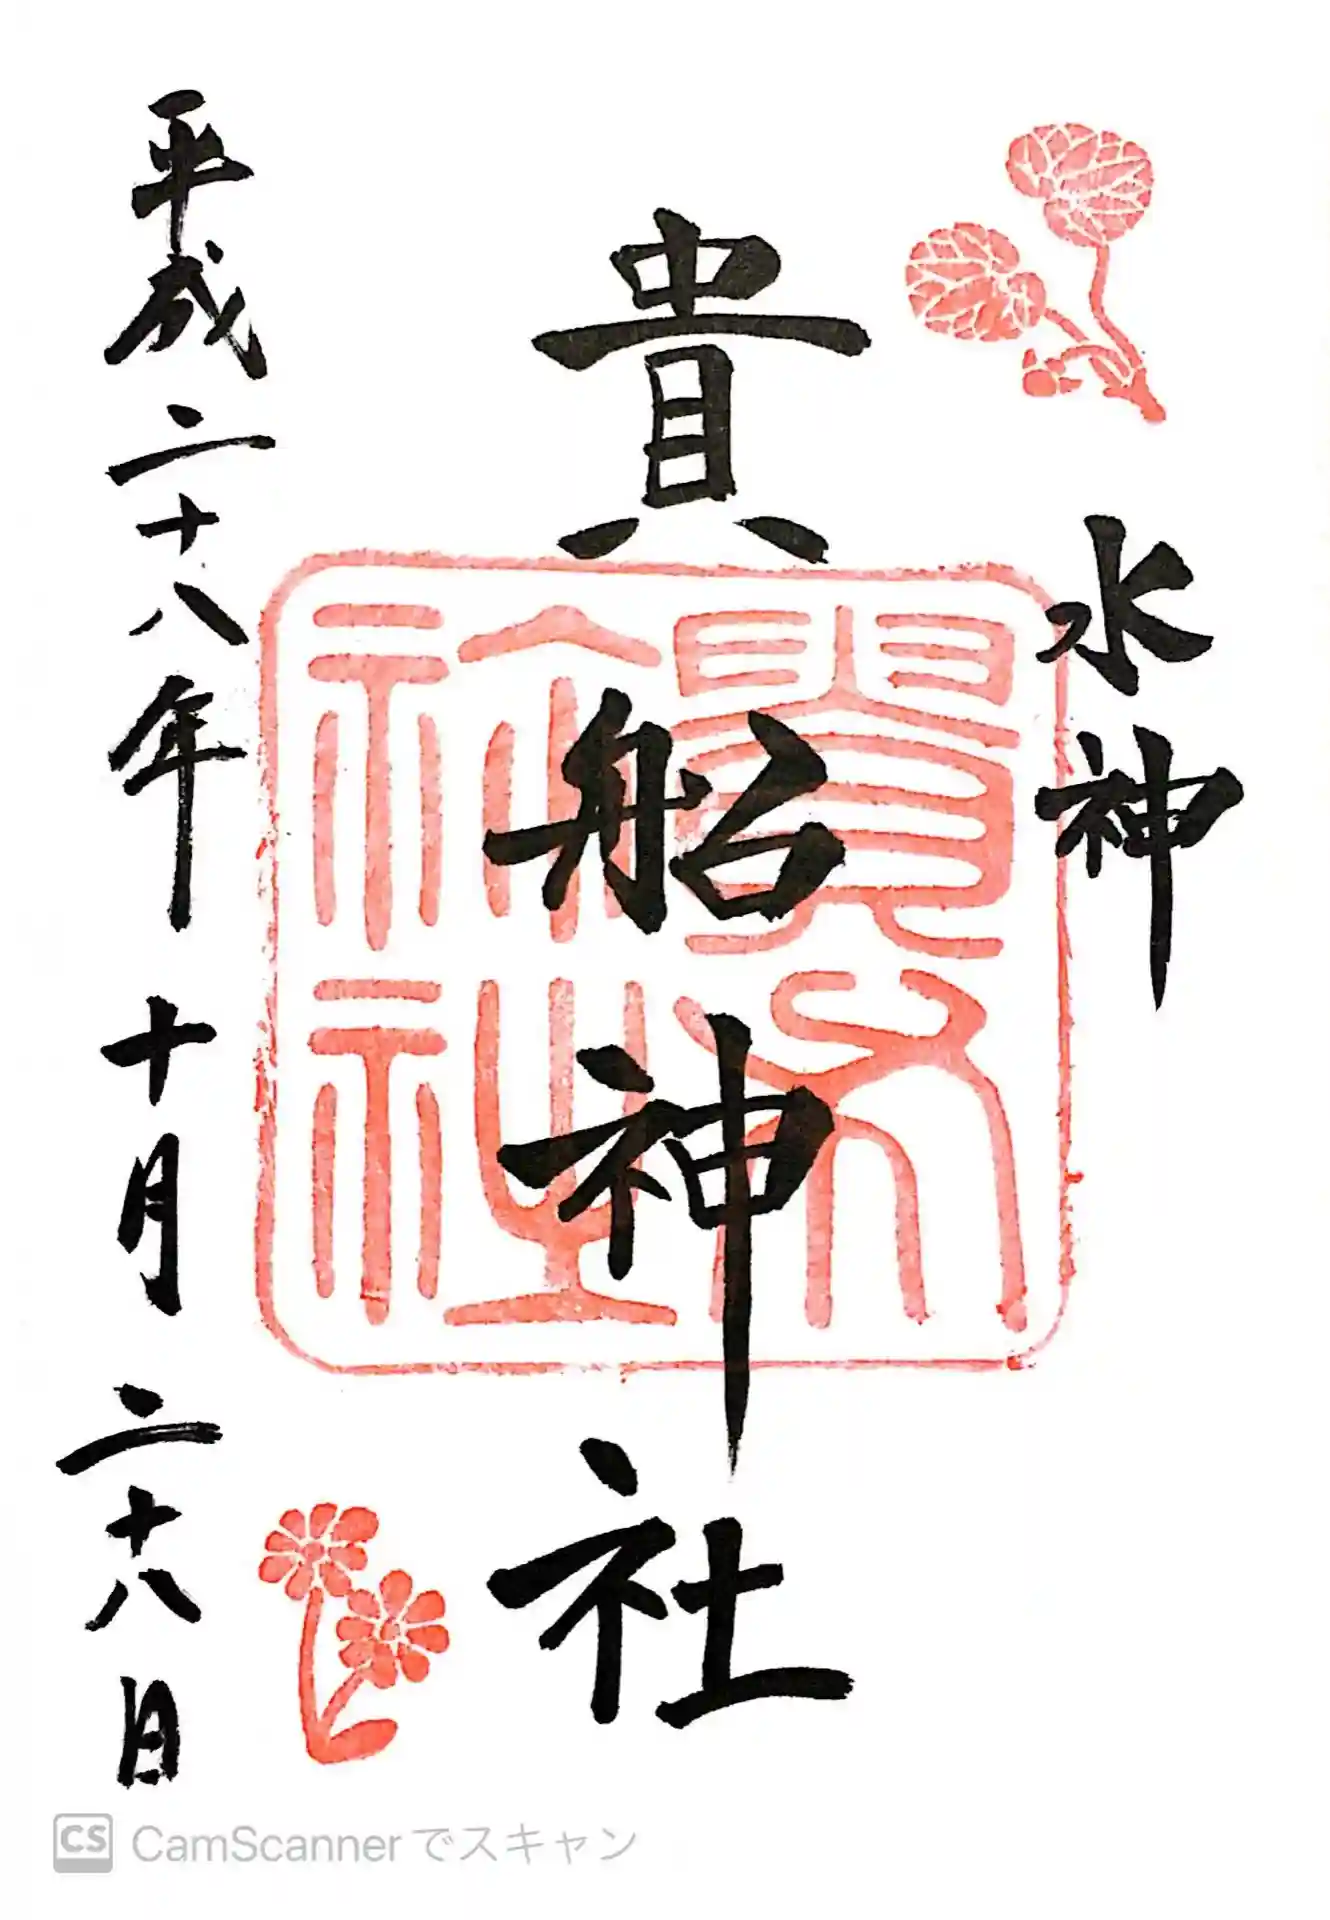 水神
貴船神社
平成二十八年十月二十八日
CS CamScannerでスキャン